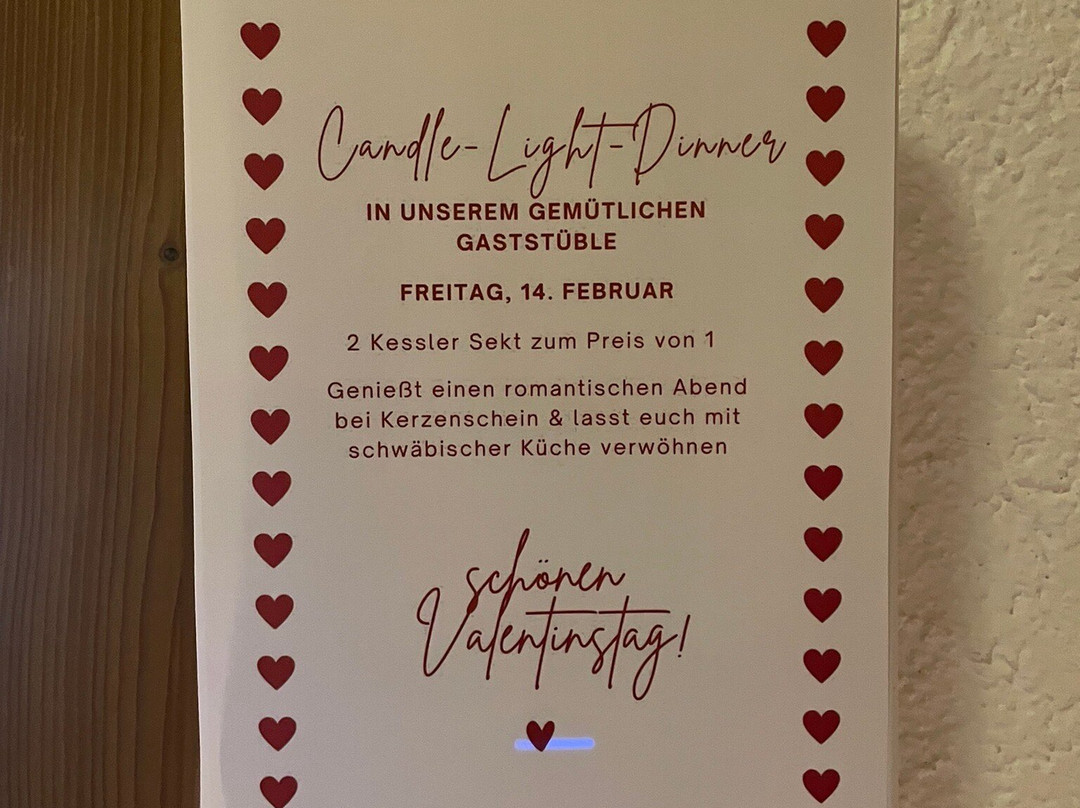 Candle-Light-Dinner
IN UNSEREM GEMÜTLICHEN
GASTSTÜBLE
FREITAG, 14. FEBRUAR
2 Kessler Sekt zum Preis von 1
Genießt einen romantischen Abend
bei Kerzenschein & lasst euch mit
schwäbischer Küche verwöhnen
schönen
Valentinstag!